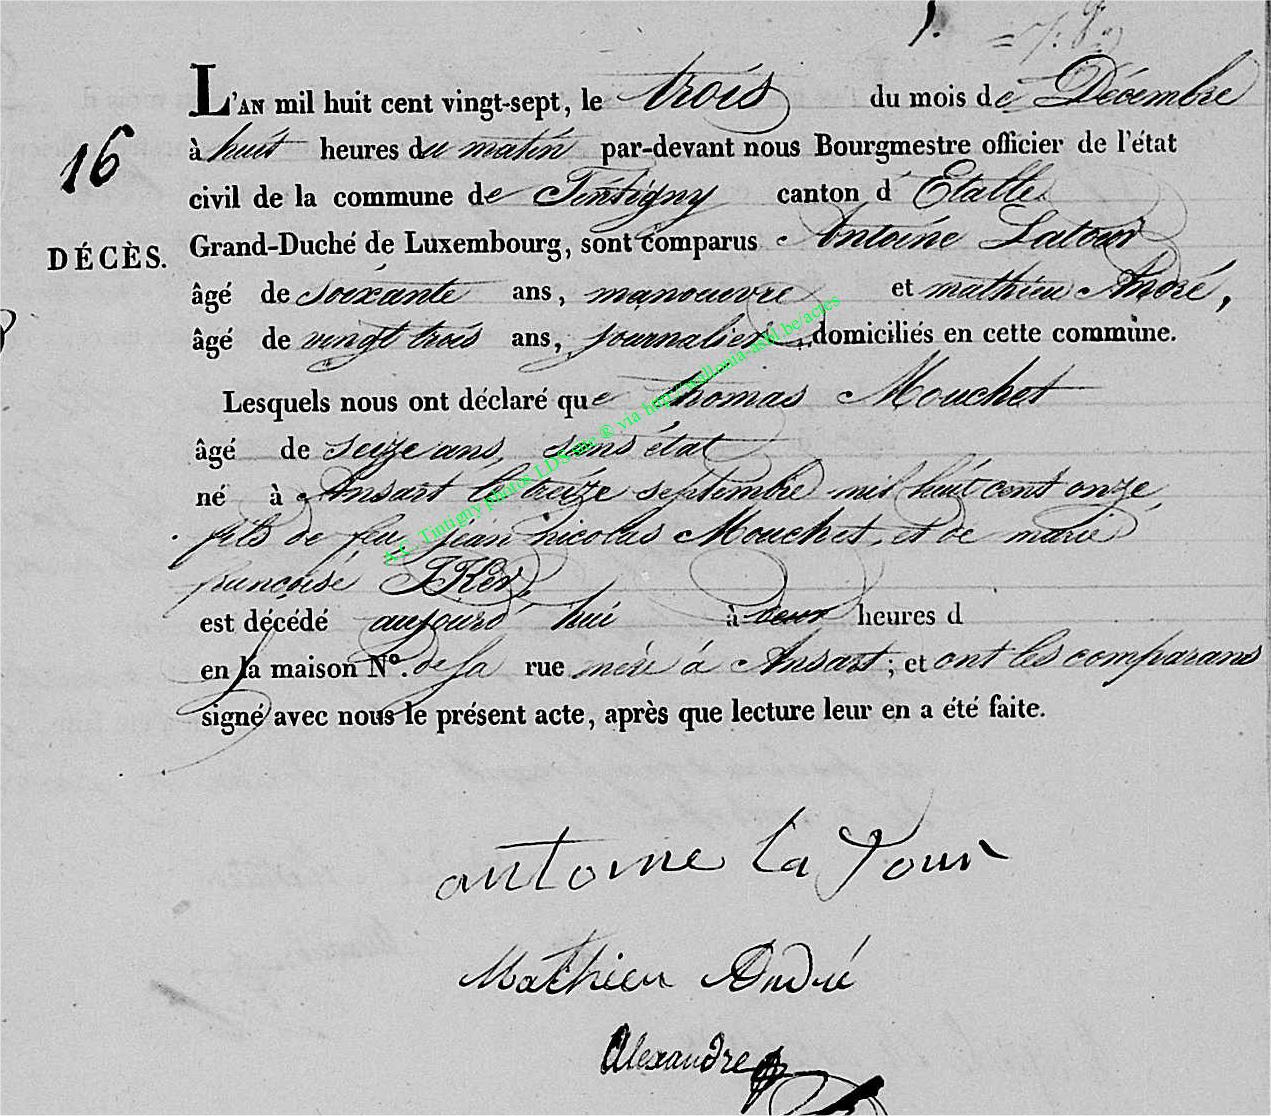 L'AN mil huit cent vingt-sept, le trois du mois de Décembre
16
à huit heures du matin par-devant nous Bourgmestre officier de l'état
civil de la commune de Tintigny canton d' Etalle
DÉCÈS.
Grand-Duché de Luxembourg, sont comparus Antoine Latour
âgé de soixante ans, manoeuvre et mathieu André,
âgé de vingt trois ans, journalier, domiciliés en cette commune.
Lesquels nous ont déclaré que thomas Mouchet
âgé de seize ans, sans état
né à Ansart le treize septembre mil huit cent onze
fils de feu jean nicolas Mouchet, et de marie
francoise
est décédé aujourd'hui à deux heures d
en la maison N° de sa rue mère à Ansart; et ont les comparans
signé avec nous le présent acte, après que lecture leur en a été faite.
A.C. Tintigny photos LDS site ® via http://wallonia-asbl.be/actes
antoine la Tour
Mathieu André
Alexandre